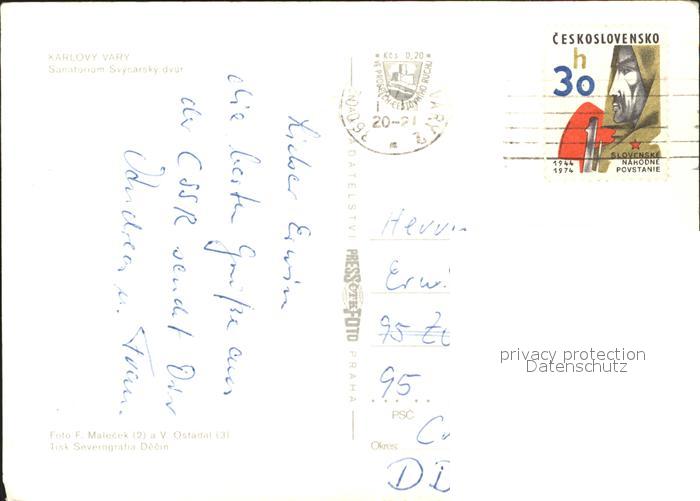 KARLOVY VARY
Sanatorium Švýcarský dvůr
Lieber Erwin
die besten Grüße aus
der CSSR sendet Dir
u. Frau.
Foto F. Maleček (2) a V. Ostádal (3)
Tisk Severografia Děčín
NAKLADATELSTVÍ
PRESSFOTO
PRAHA
Kčs 0,20
VARY
20-
ČESKOSLOVENSKO
h
30
1944
1974
SLOVENSKÉ
NÁRODNÉ
POVSTANIE
Herrn
Erwi
95
95
PSČ
Okres
DD
privacy protection
Datenschutz